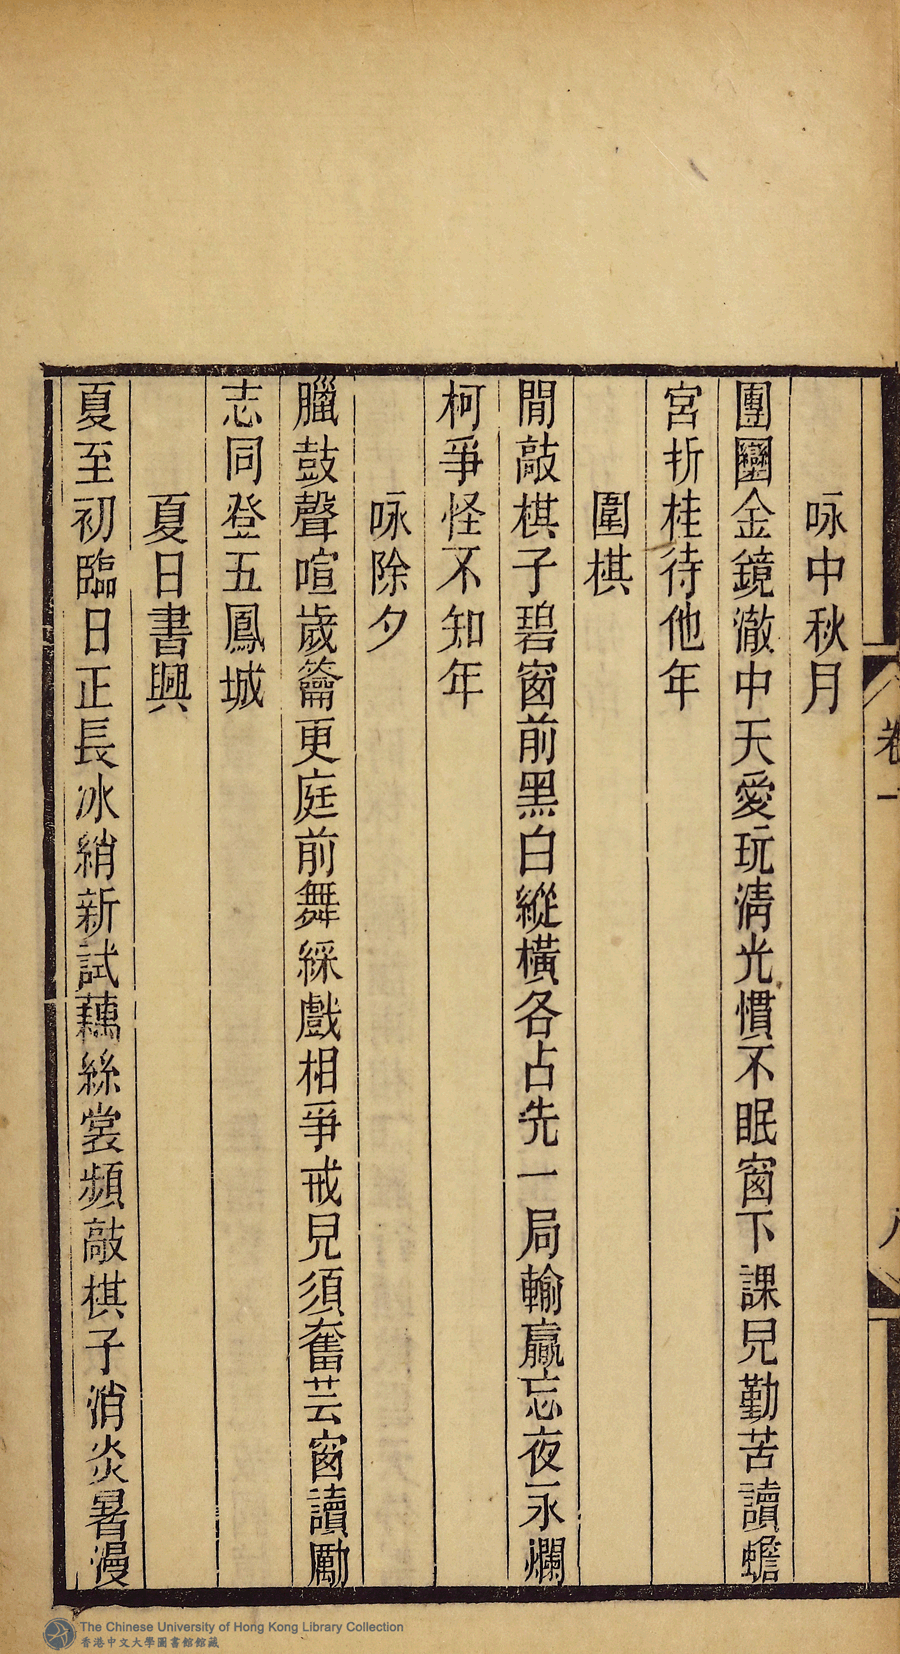 咏中秋月
團圞金鏡澈中天愛玩清光慣不眠窗下課兒勤苦讀蟾
宮折桂待他年
圍棋
閒敲棋子碧窗前黑白縱橫各占先一局輸贏忘夜永爛
柯爭怪不知年
咏除夕
臘鼓聲喧歲籥更庭前舞綵戲相爭戒兒須奮芸窗讀勵
志同登五鳳城
夏日書興
夏至初臨日正長冰綃新試藕絲裳頻敲棋子消炎暑漫
卷一
八
The Chinese University of Hong Kong Library Collection
香港中文大學圖書館館藏